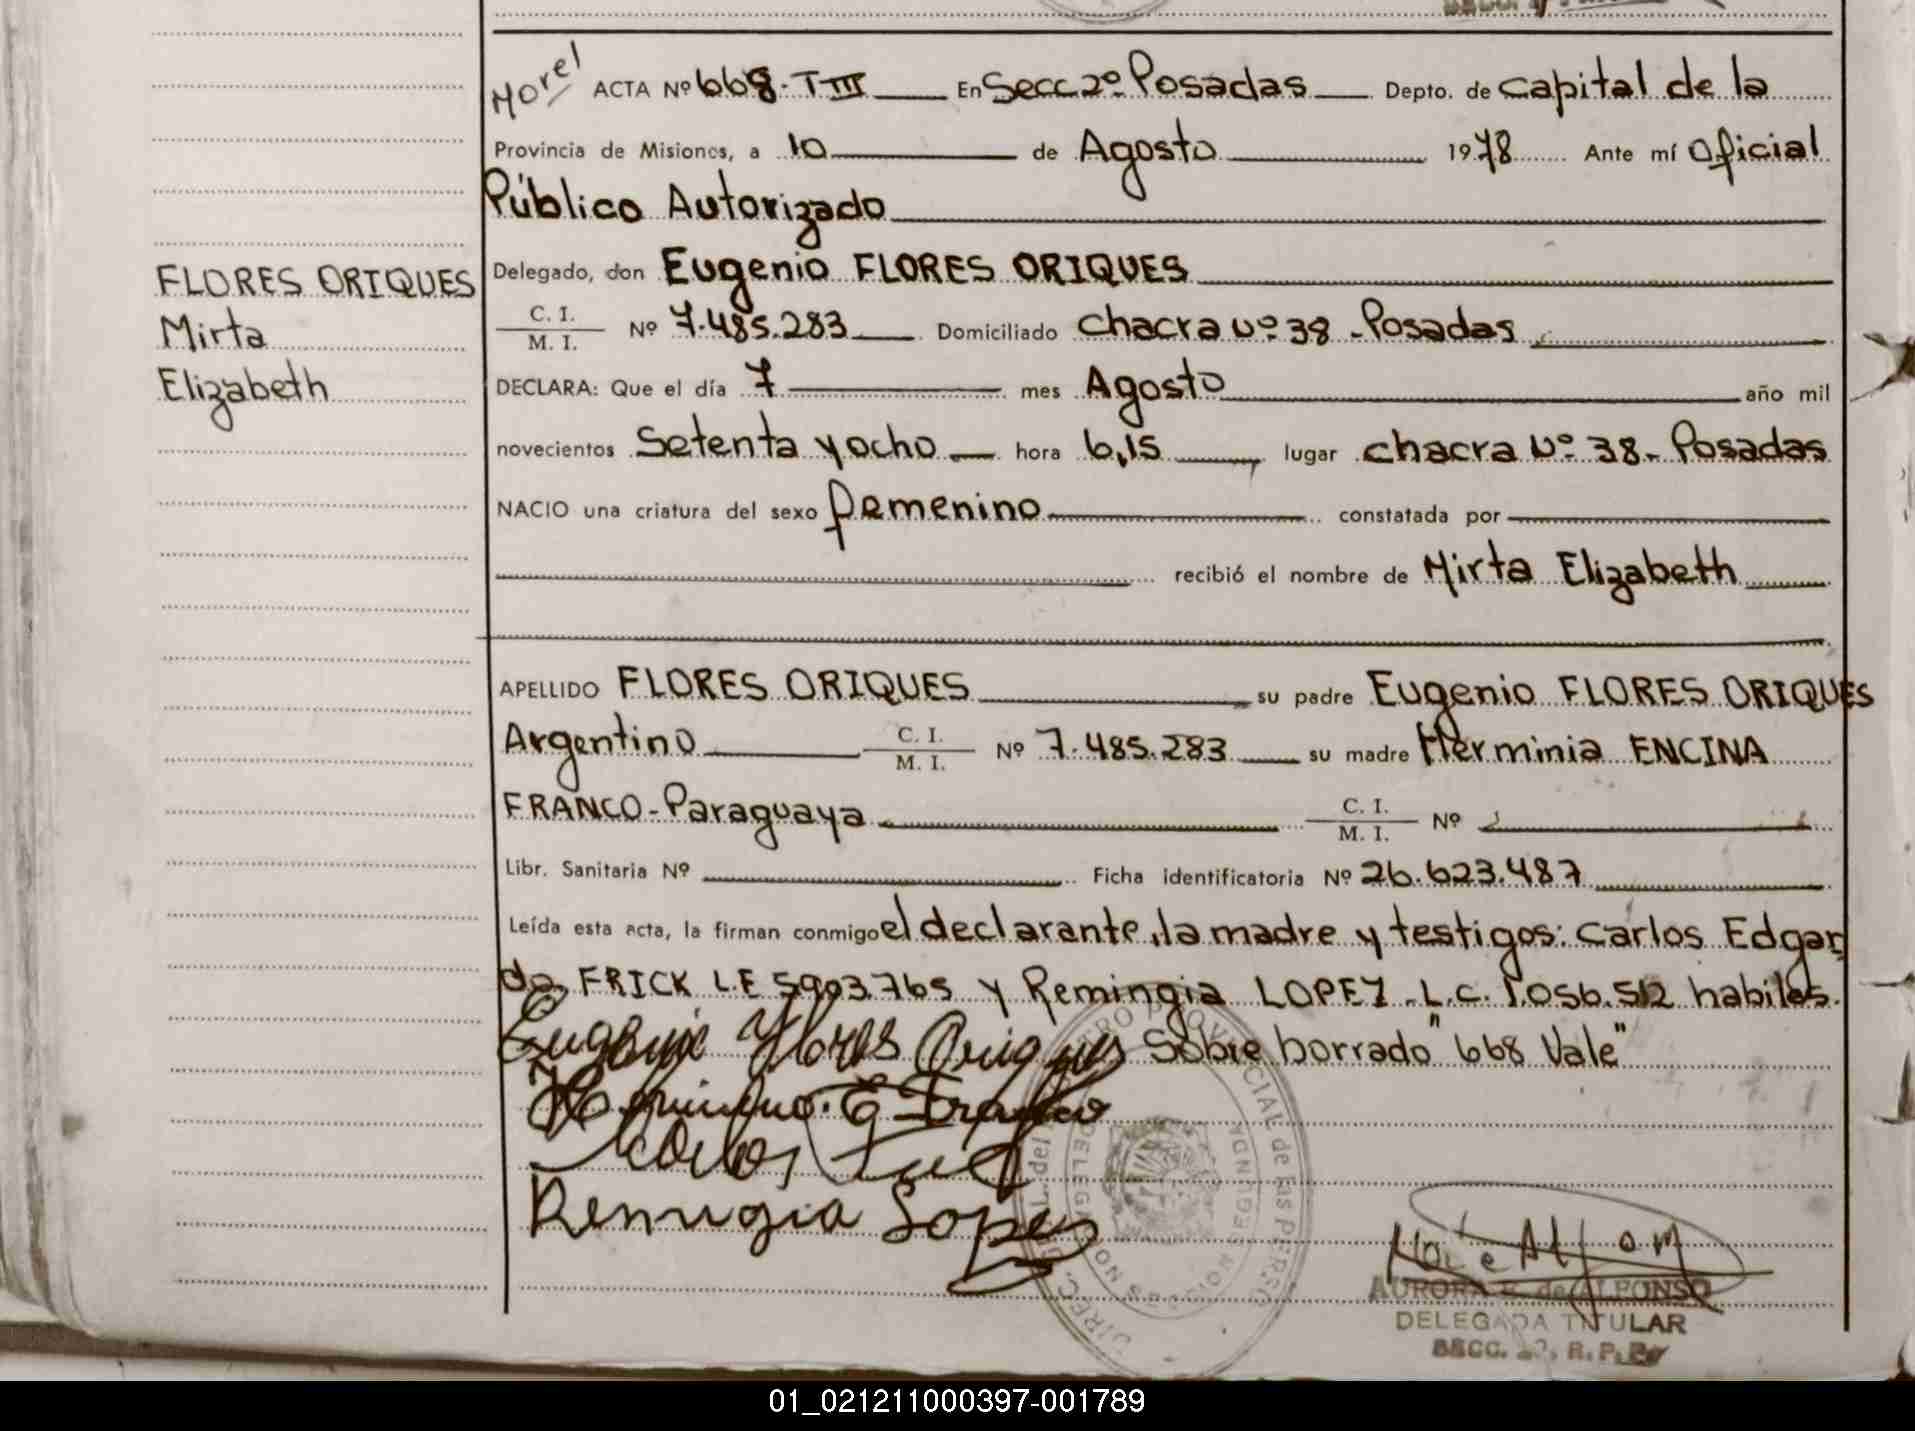 Morel ACTA Nº 668. T III En Secc 2º Posadas Depto. de Capital de la
Provincia de Misiones, a 10 de Agosto 1978 Ante mí Oficial
Público Autorizado
FLORES ORIQUES
Mirta
Elizabeth
Delegado, don Eugenio FLORES ORIQUES
C. I.
M. I. Nº 7.485.283 Domiciliado Chacra Nº 38 - Posadas
DECLARA: Que el día 7 mes Agosto año mil
novecientos Setenta y ocho hora 6,15 lugar chacra Nº 38 - Posadas
NACIO una criatura del sexo femenino constatada por
recibió el nombre de Mirta Elizabeth
APELLIDO FLORES ORIQUES su padre Eugenio FLORES ORIQUES
Argentino C. I. M. I. Nº 7.485.283 su madre Herminia ENCINA
FRANCO - Paraguaya C. I. M. I. Nº
Libr. Sanitaria Nº Ficha identificatoria Nº 26.623.487
Leída esta acta, la firman conmigo el declarante, la madre y testigos: Carlos Edgar
do FRICK L.E 5903.765 y Remingia LOPEZ - L.C. 1.056.512 habiles.
Eugenio Flores Oriques Sobre borrado "668 Vale"
E Franco
Carlos
Remigia Lopez
AURORA de ALFONSO
DELEGADA TITULAR
SECC. 2ª. R. P. P.
01_021211000397-001789